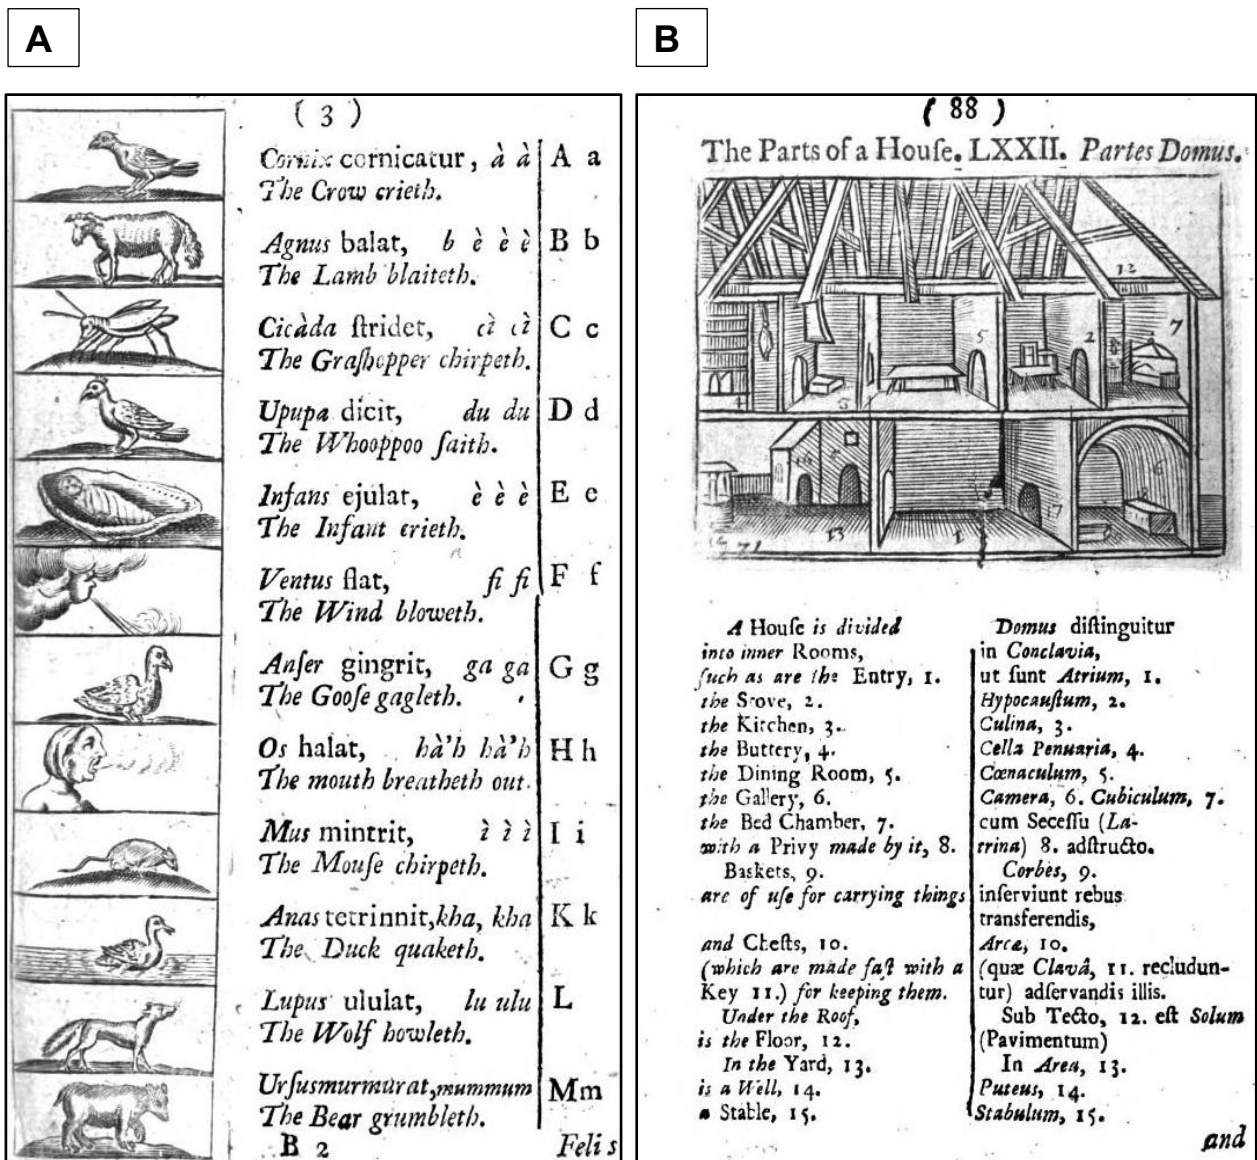 A
( 3 )
Cornix cornicatur, à à A a
The Crow crieth.
Agnus balat, b è è è B b
The Lamb blaiteth.
Cicàda ſtridet, cì cì C c
The Graſhopper chirpeth.
Upupa dicit, du du D d
The Whooppoo ſaith.
Infans ejulat, è è è E e
The Infant crieth.
Ventus flat, fi fi F f
The Wind bloweth.
Anſer gingrit, ga ga G g
The Gooſe gagleth.
Os halat, hà'h hà'h H h
The mouth breatheth out.
Mus mintrit, ì ì ì I i
The Mouſe chirpeth.
Anas tetrinnit, kha, kha K k
The Duck quaketh.
Lupus ululat, lu ulu L
The Wolf howleth.
Urſus murmurat, mummum M m
The Bear grumbleth.
B 2 Felis
B
( 88 )
The Parts of a Houſe. LXXII. Partes Domus.
12
5 2 8 7
4 3
6
17
13 1
A Houſe is divided
into inner Rooms,
ſuch as are the Entry, 1.
the Stove, 2.
the Kitchen, 3.
the Buttery, 4.
the Dining Room, 5.
the Gallery, 6.
the Bed Chamber, 7.
with a Privy made by it, 8.
Baskets, 9.
are of uſe for carrying things
and Cheſts, 10.
(which are made faſt with a
Key 11.) for keeping them.
Under the Roof,
is the Floor, 12.
In the Yard, 13.
is a Well, 14.
a Stable, 15.
Domus diſtinguitur
in Conclavia,
ut ſunt Atrium, 1.
Hypocauſtum, 2.
Culina, 3.
Cella Penuaria, 4.
Cœnaculum, 5.
Camera, 6. Cubiculum, 7.
cum Seceſſu (La-
trina) 8. adſtructo.
Corbes, 9.
inſerviunt rebus
transferendis,
Arcæ, 10.
(quæ Clavâ, 11. recludun-
tur) adſervandis illis.
Sub Tecto, 12. eſt Solum
(Pavimentum)
In Area, 13.
Puteus, 14.
Stabulum, 15.
and